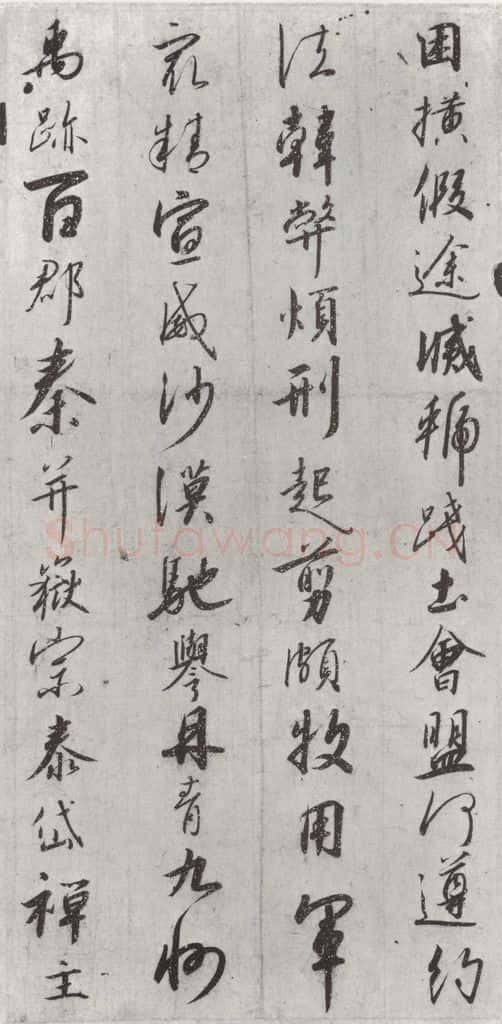 困橫假途滅虢踐土會盟何遵約
法韓弊煩刑起翦頗牧用軍
最精宣威沙漠馳譽丹青九州
禹跡百郡秦并嶽宗泰岱禪主
Shufawang.CN